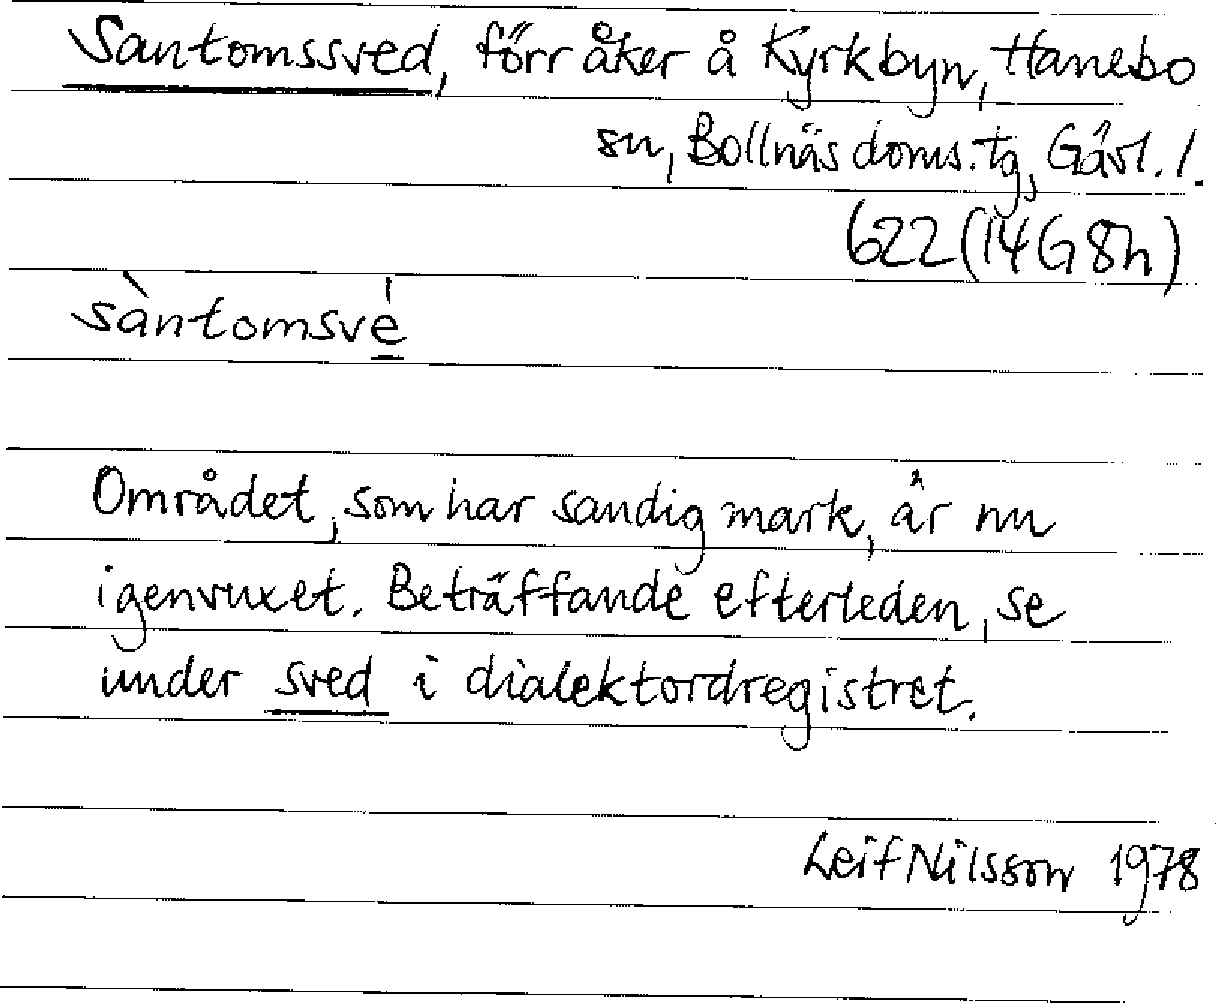 Santomssved, förr åker å Kyrkbyn, Hanebo
sn, Bollnäs doms. tg, Gävl. l.
622 (14 G 8h)
sàntomsvé̱
Området, som har sandig mark, är nu
igenvuxet. Beträffande efterleden, se
under sved i dialektordregistret.
Leif Nilsson 1978